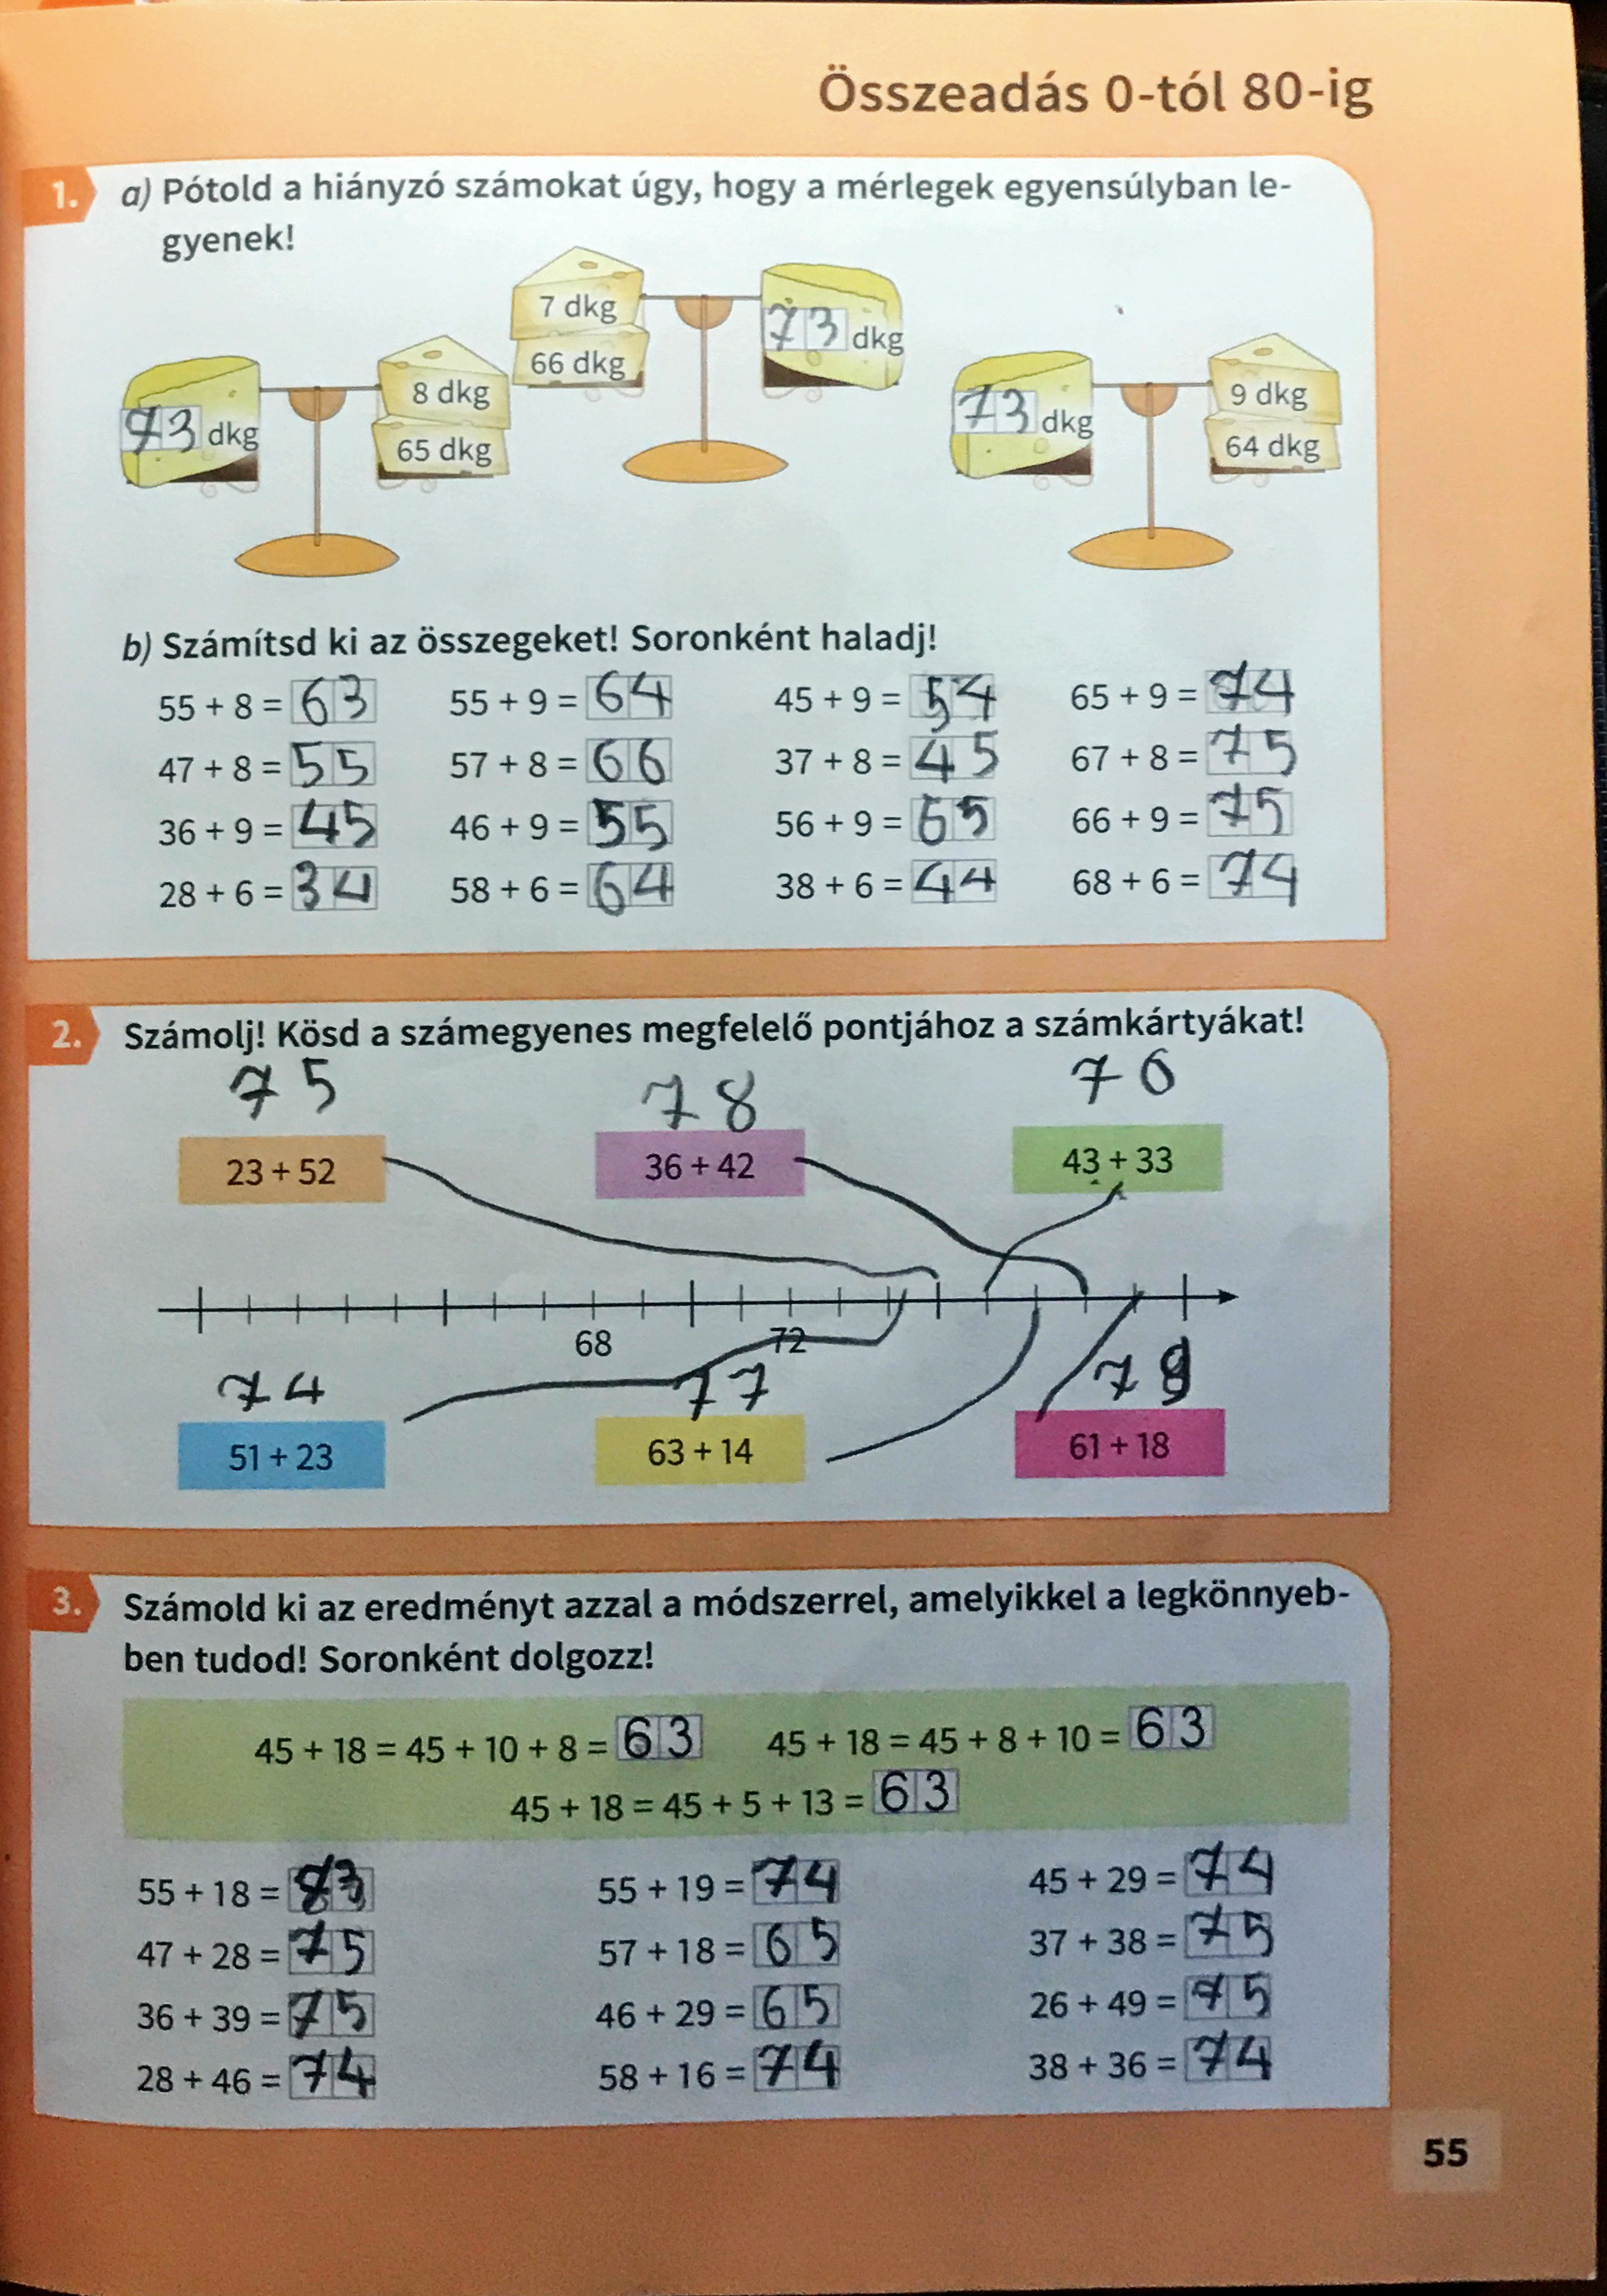 Összeadás 0-tól 80-ig
1. a) Pótold a hiányzó számokat úgy, hogy a mérlegek egyensúlyban le-
gyenek!
73 dkg 8 dkg 65 dkg
7 dkg 66 dkg 73 dkg
73 dkg 9 dkg 64 dkg
b) Számítsd ki az összegeket! Soronként haladj!
55 + 8 = 63 55 + 9 = 64 45 + 9 = 54 65 + 9 = 74
47 + 8 = 55 57 + 8 = 66 37 + 8 = 45 67 + 8 = 75
36 + 9 = 45 46 + 9 = 55 56 + 9 = 65 66 + 9 = 75
28 + 6 = 34 58 + 6 = 64 38 + 6 = 44 68 + 6 = 74
2. Számolj! Kösd a számegyenes megfelelő pontjához a számkártyákat!
75 78 76
23 + 52 36 + 42 43 + 33
68 72
74 77 79
51 + 23 63 + 14 61 + 18
3. Számold ki az eredményt azzal a módszerrel, amelyikkel a legkönnyeb-
ben tudod! Soronként dolgozz!
45 + 18 = 45 + 10 + 8 = 63 45 + 18 = 45 + 8 + 10 = 63
45 + 18 = 45 + 5 + 13 = 63
55 + 18 = 55 + 19 = 74 45 + 29 = 74
47 + 28 = 75 57 + 18 = 65 37 + 38 = 75
36 + 39 = 75 46 + 29 = 65 26 + 49 = 75
28 + 46 = 74 58 + 16 = 74 38 + 36 = 74
55